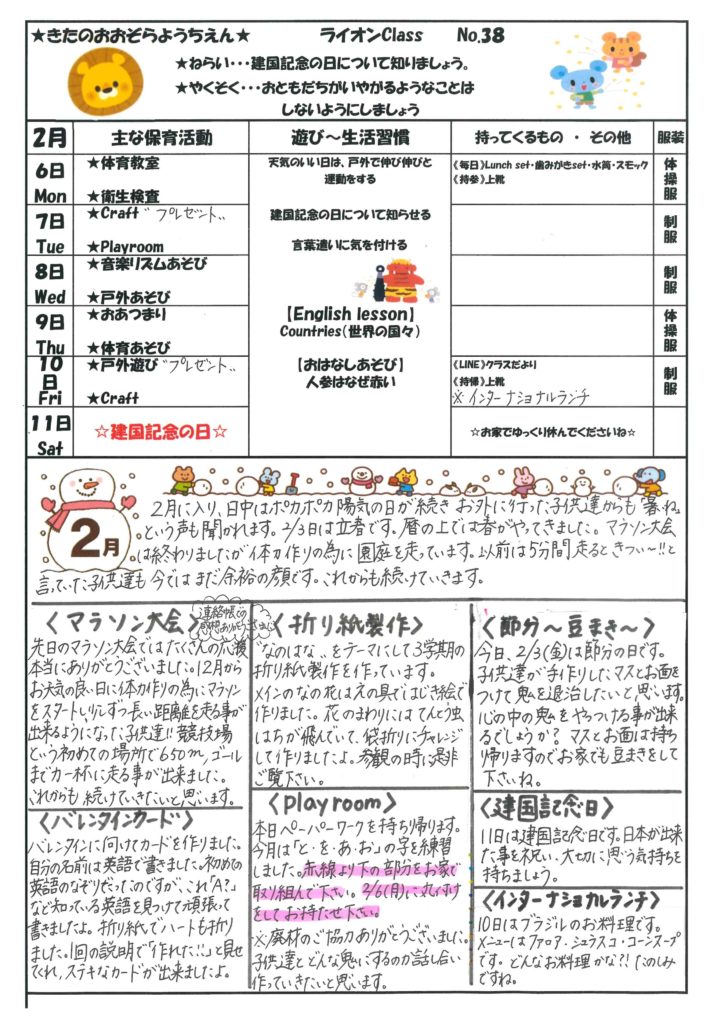 ★きたのおおぞらようちえん★ ライオンClass No.38
★ねらい・・・建国記念の日について知りましょう。
★やくそく・・・おともだちがいやがるようなことは
しないようにしましょう
2月 主な保育活動 遊び～生活習慣 持ってくるもの ・ その他 服装
6日 Mon ★体育教室
★衛生検査
天気のいい日は、戸外で伸び伸びと
運動をする
《毎日》Lunch set・歯みがきset・水筒・スモック
《持参》上靴
体操服
7日 Tue ★Craft “プレゼント”
★Playroom
建国記念の日について知らせる
言葉遣いに気を付ける
制服
8日 Wed ★音楽リズムあそび
★戸外あそび
制服
9日 Thu ★おあつまり
★体育あそび
【English lesson】
Countries(世界の国々)
体操服
10日 Fri ★戸外遊び “プレゼント”
★Craft
【おはなしあそび】
人参はなぜ赤い
《LINE》クラスだより
《持帰》上靴
※インターナショナルランチ
制服
11日 Sat ☆建国記念の日☆ ☆お家でゆっくり休んでくださいね☆
2月
2月に入り、日中はポカポカ陽気の日が続き お外に行った子供達からも「暑いね」
という声も聞かれます。2/3日は立春です。暦の上では春がやってきました。マラソン大会
は終わりましたが体力作りの為に園庭を走っています。以前は5分間走るときつい～!!と
言っていた子供達も今ではまだ余裕の顔です。これからも続けていきます。
〈マラソン大会〉
連絡帳での
感想ありがとうございました
先日のマラソン大会ではたくさんの応援
本当にありがとうございました。12月から
お天気の良い日に体力作りの為にマラソン
をスタートし、少しずつ長い距離を走る事が
出来るようになった子供達!!競技場
という初めての場所で650m、ゴール
まで力一杯に走る事が出来ました。
これからも続けていきたいと思います。
〈バレンタインカード〉
バレンタインに向けてカードを作りました。
自分の名前は英語で書きました。初めての
英語のなぞりだったのですが、これ「A?」
など知っている英語を見つけて頑張って
書きましたよ。折り紙でハートも折り
ました。1回の説明で「作れた!!」と見せ
てくれ、ステキなカードが出来ましたよ。
〈折り紙製作〉
“なのはな”をテーマにして3学期の
折り紙製作を作っています。
メインのなの花はえの具ではじき絵で
作りました。花のまわりにはてんとう虫
はちが飛んでいて、袋折りにチャレンジ
して作りましたよ。参観の時に是非
ご覧下さい。
〈playroom〉
本日ペーパーワークを持ち帰ります。
今月は「と・を・あ・お」の字を練習
しました。赤線より下の部分をお家で
取り組んで下さい。2/6(月)に丸付け
をしてお持たせ下さい。
※廃材のご協力ありがとうございました。
子供達とどんな鬼にするのか話し合い
作っていきたいと思います。
〈節分～豆まき～〉
今日、2/3(金)は節分の日です。
子供達が手作りしたマスとお面を
つけて鬼を退治したいと思います。
心の中の鬼をやっつける事が出来
るでしょうか？マスとお面は持ち
帰りますのでお家でも豆まきをして
下さいね。
〈建国記念日〉
11日は建国記念日です。日本が出来
た事を祝い、大切に思う気持ちを
持ちましょう。
〈インターナショナルランチ〉
10日はブラジルのお料理です。
メニューはファロファ・シュラスコ・コーンスープ
です。どんなお料理かな？！たのしみ
ですね。